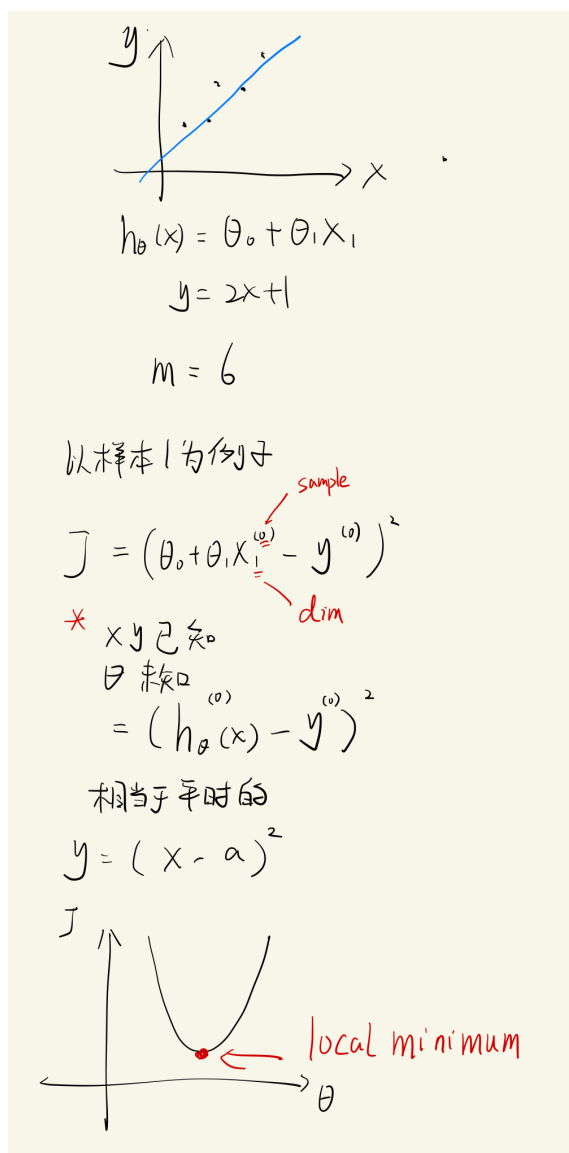 y
x
hθ(x) = θ₀ + θ₁x₁
y = 2x+1
m = 6
以样本1为例子
sample
J = (θ₀+θ₁x₁⁽⁰⁾ - y⁽⁰⁾)²
dim
* x y 已知
θ 未知
= (hθ⁽⁰⁾(x) - y⁽⁰⁾)²
相当于平时的
y = (x - a)²
J
local minimum
θ